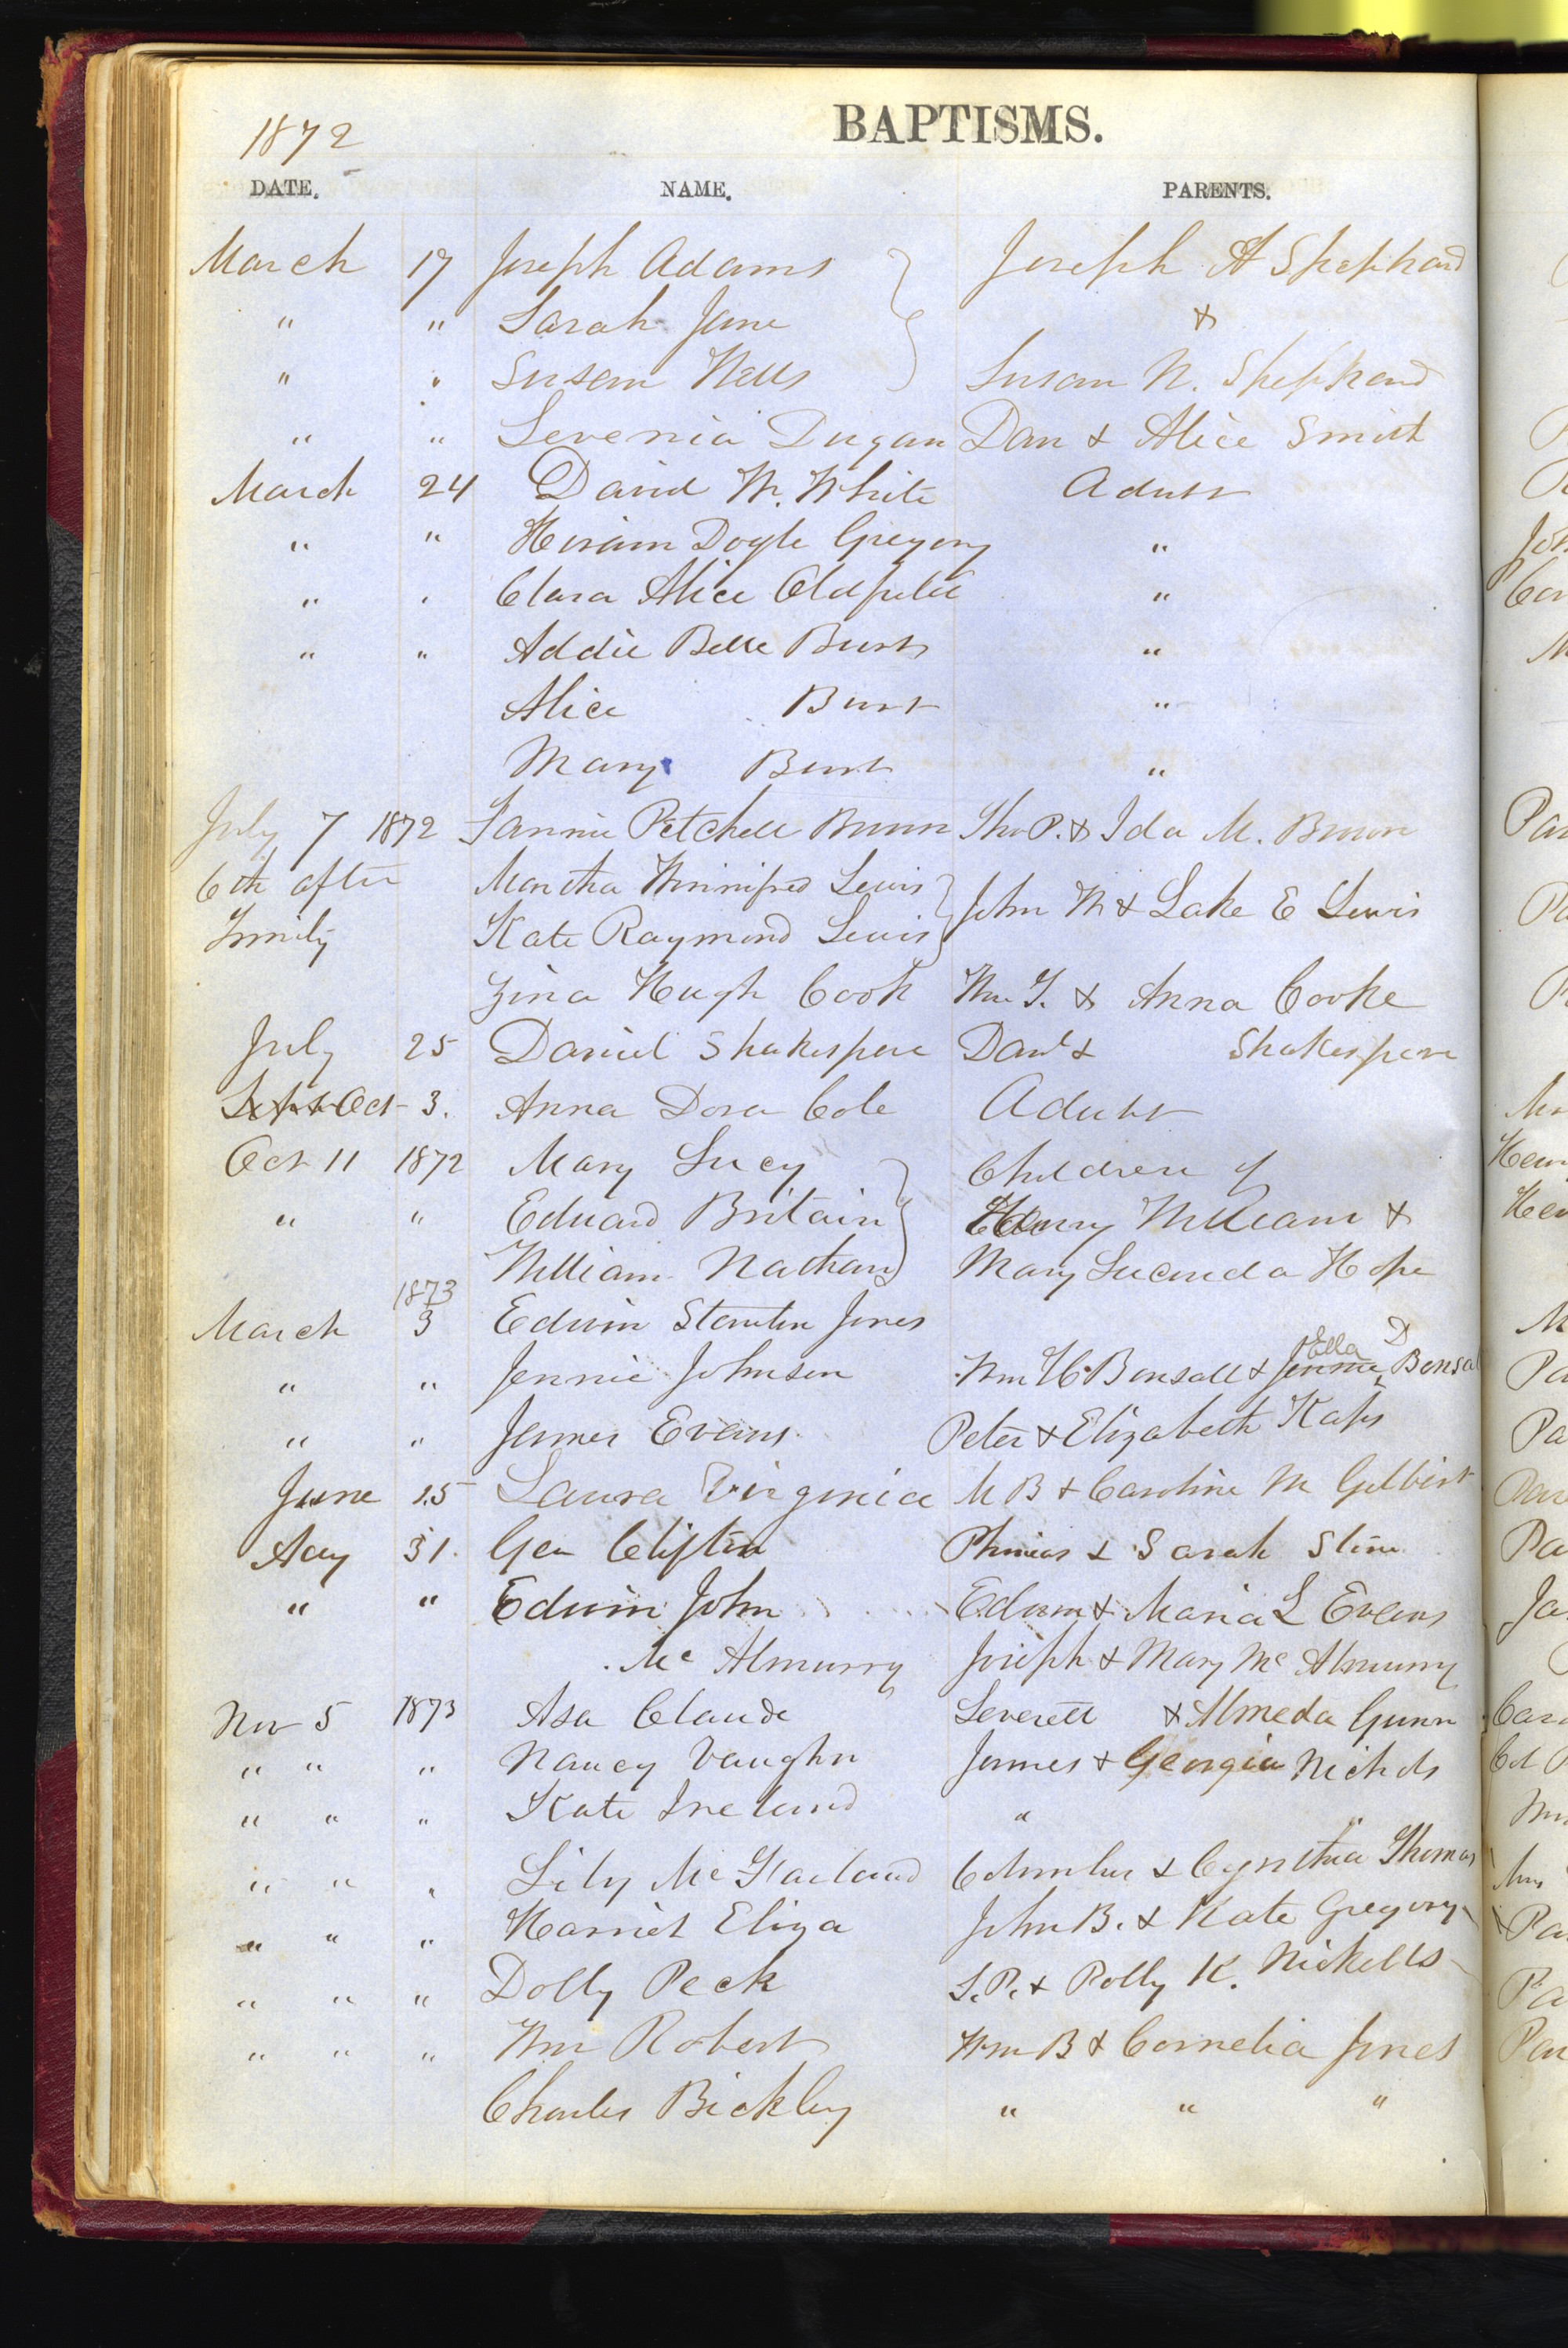 1872
BAPTISMS.
DATE. NAME. PARENTS.
March 17 Joseph Adams Joseph A Shephard
" " Sarah Jane &
" " Susan Wells Susan W. Shephard
" " Levenia Dugan Dan & Alice Smith
March 24 David W. White Adult
" " Hiram Doyle Gregory "
" " Clara Alice Oldfield "
" " Addie Belle Burt "
Alice Burt "
Mary Burt "
July 7 1872 Fannie Petchell Brown Tho P. & Ida M. Brown
6th after Martha Winnifred Lewis John W & Lake E Lewis
Trinity Kate Raymond Lewis
Zina Hugh Cook Wm T. & Anna Cooke
July 25 Daniel Shakespere Danl & Shakespere
Sept Oct 3. Anna Dora Cole Adult
Oct 11 1872 Mary Lucy Children of
" " Edward Britain Henry William &
William Nathan Mary Lucinda Hope
1873
March 3 Edwin Stanton Jones
Ella D
" " Jennie Johnson Wm H Bonsall & Jennie Bonsal
" " James Evans Peter & Elizabeth Kaps
June 15 Laura Virginia M B & Caroline M Gilbert
Aug 31. Geo Clifton Phineas & Sarah
" " Edwin John Edwin & Maria L Evans
Mc Almurry Joseph & Mary Mc Almurry
Nov 5 1873 Asa Claude Leverett & Almeda Gunn
" " " Nancy Vaughn James & Georgia Nichols
" " " Kate Ireland " "
" " " Lily McFarland Columbus & Cynthia Thomas
" " " Harriet Eliza John B. & Kate Gregory
" " " Dolly Peck S. P. & Polly K. Nickells
" " " Wm Robert Wm B & Cornelia Jones
Charles Bickley " " "